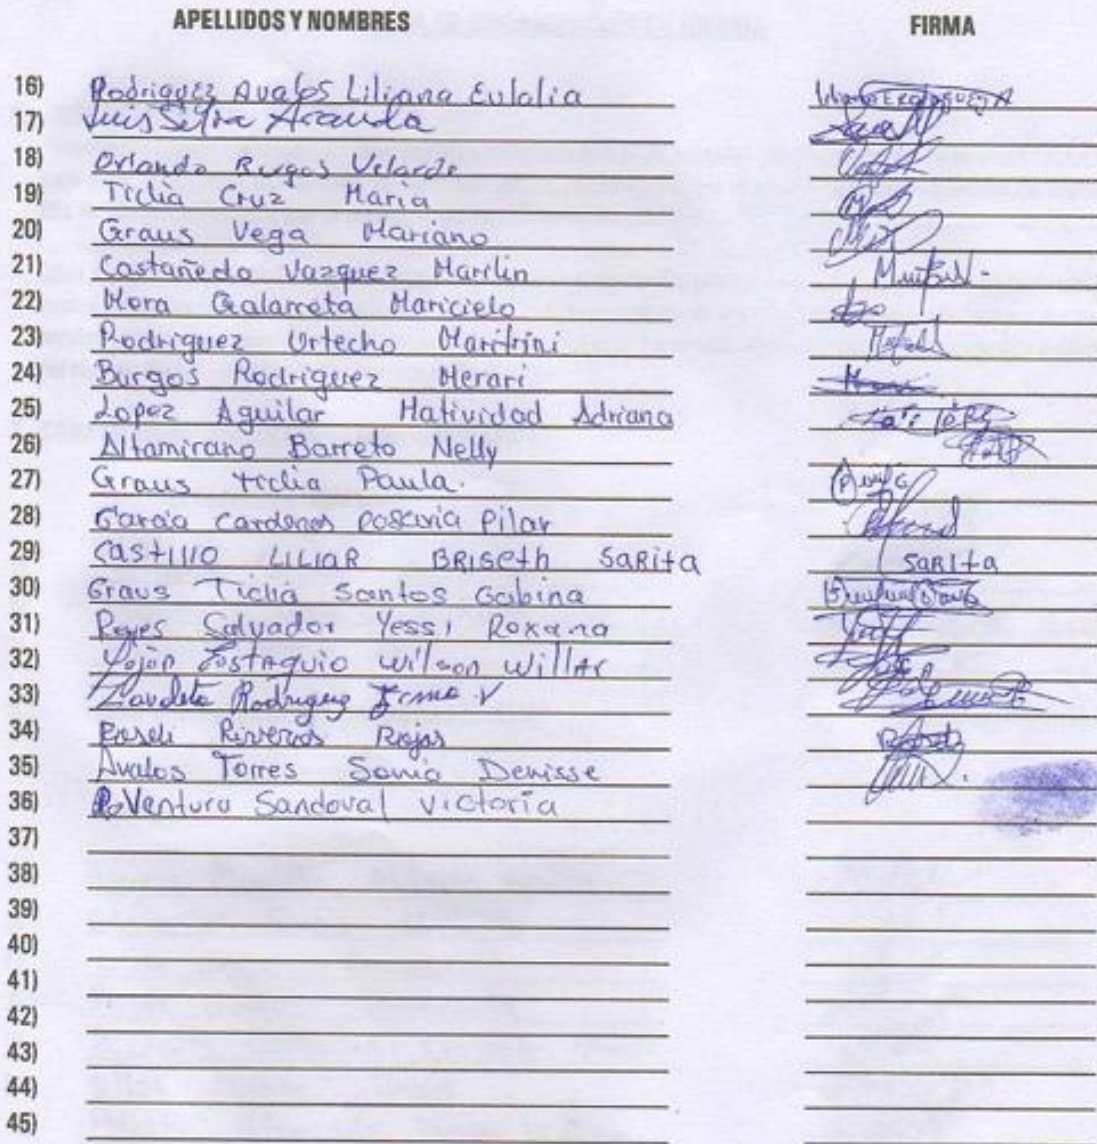 APELLIDOS Y NOMBRES FIRMA
16) Rodriguez Avalos Liliana Eulalia
17) Luis Silva Aranda
18) Orlando Burgos Velarde
19) Ticlia Cruz Maria
20) Graus Vega Mariano
21) Castañeda Vazquez Marilin
22) Mora Galarreta Maricielo
23) Rodriguez Urtecho Maritrini
24) Burgos Rodriguez Merari
25) Lopez Aguilar Natividad Adriana
26) Altamirano Barreto Nelly
27) Graus Ticlia Paula.
28) Garcia Cardenas Rosaria Pilar
29) CAStIllO LILIAR BRISEth SaRIta SaRIta
30) Graus Ticlia Santos Gabina
31) Reyes Salvador Yessi Roxana
32) Eustaquio wilson willAr
33) Zavaleta Rodriguez Irma V
34) Roseli Riveros Rojas
35) Avalos Torres Sonia Denisse
36) Ventura Sandoval Victoria
37)
38)
39)
40)
41)
42)
43)
44)
45)